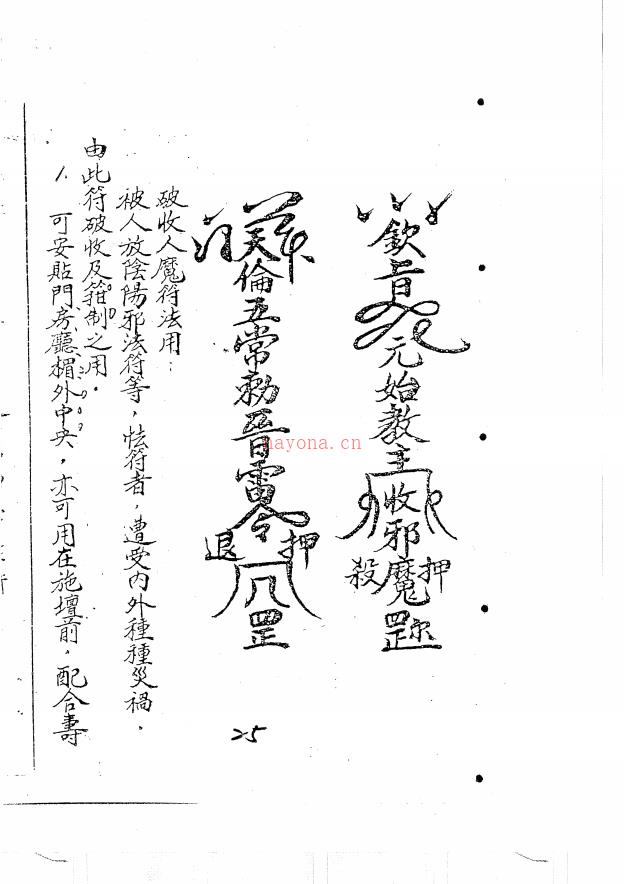 欽旨元始教主收邪魔
押
殺
罡
天倫五常勅晉雷令
押
退
罡
破收人魔符法用：
被人放陰陽邪法符等，怯符者，遭受内外種種災禍，
由此符破收及箝制之用。
1. 可安貼門房廳楣外中央，亦可用在施壇前，配合壽
25
nayona.cn